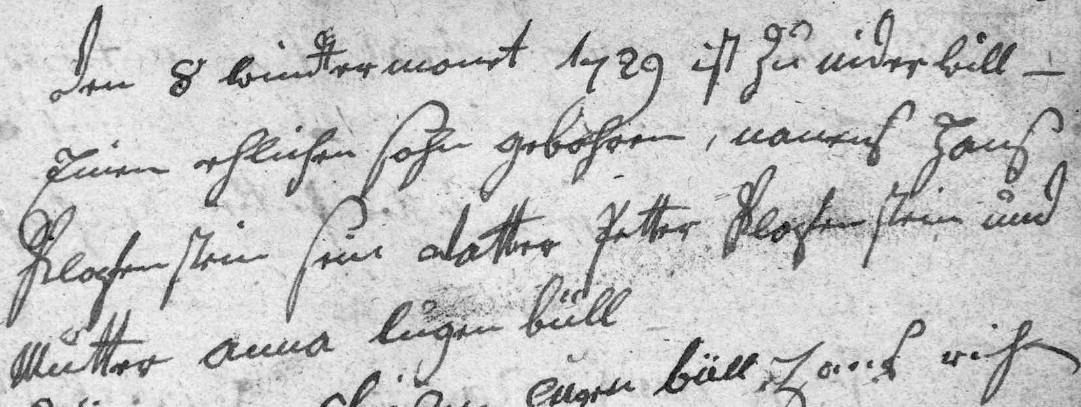 Den 8 windtermonet 1729 ist zu niderbüll –
Einen ehlichen sohn gebohren, namens Hans
Klopfenstein sein vatter Petter Klopfenstein und
Mutter anna lugenbüll
lugenbüll Hans